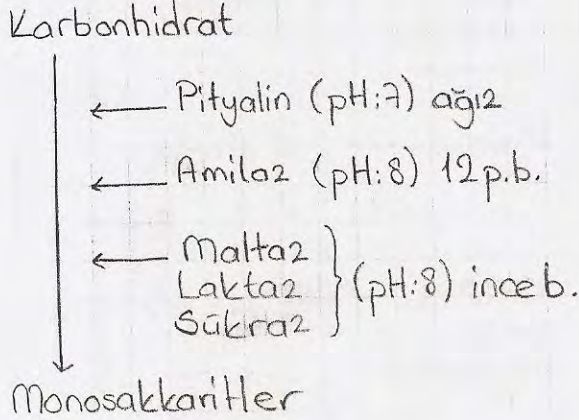 Karbonhidrat
Pityalin (pH:7) ağız
Amilaz (pH:8) 12 p.b.
Maltaz
Laktaz } (pH:8) ince b.
Sükraz
Monosakkaritler